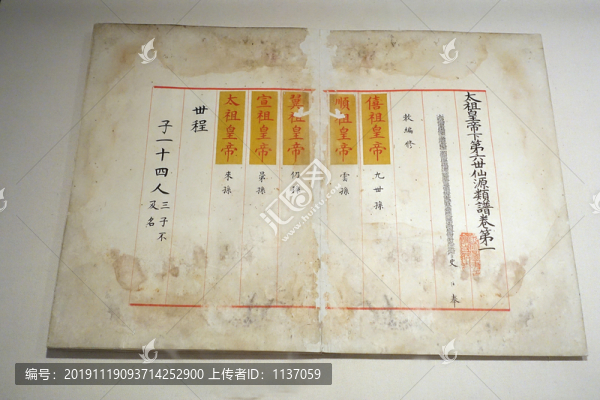 太祖皇帝下第六世仙源類譜卷第一
奉
敕編修
僖祖皇帝 九世孫
順祖皇帝 雲孫
翼祖皇帝 仍孫
宣祖皇帝 晜孫
太祖皇帝 來孫
世程
子一十四人 三子不
及名
编号：20191119093714252900 上传者ID：1137059